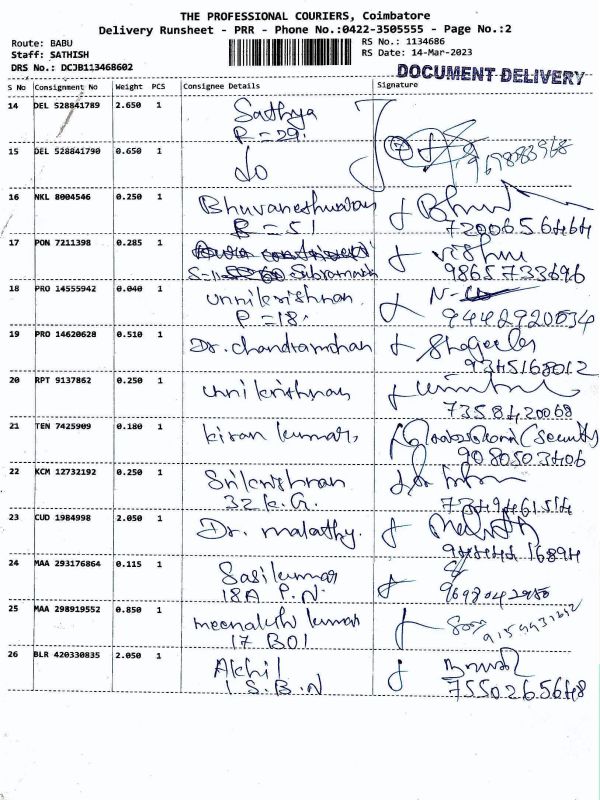 THE PROFESSIONAL COURIERS, Coimbatore
Delivery Runsheet - PRR - Phone No.:0422-3505555 - Page No.:2
Route: BABU
RS No.: 1134686
Staff: SATHISH
RS Date: 14-Mar-2023
DRS No.: DCJB113468602
DOCUMENT DELIVERY
S No Consignment No Weight PCS Consignee Details Signature
14 DEL 528841789 2.650 1 Sathya
R = 29.
15 DEL 528841790 0.650 1 do
16 NKL 8004546 0.250 1 Bhuvaneshwaran
R = 51 7200656464
17 PON 7211398 0.285 1 Vishnu
Subramani 9865733696
18 PRO 14555942 0.040 1 unnikrishnan
P = 18. 9442920034
19 PRO 14620628 0.510 1 Dr. chandramohan
9345168012
20 RPT 9137862 0.250 1 unnikrishnan
7358420068
21 TEN 7425909 0.180 1 kiran kumar, (Security)
9080503406
22 KCM 12732192 0.250 1 Srikrishnan
32 K.G.
23 CUD 1984998 2.050 1 Dr. malathy. Malathy
24 MAA 293176864 0.115 1 Sasikumar
18A P.N.
25 MAA 298919552 0.850 1 meenakshi kumar
17 BOI
26 BLR 420330835 2.050 1 Akhil
1 S.B.N 7550265648